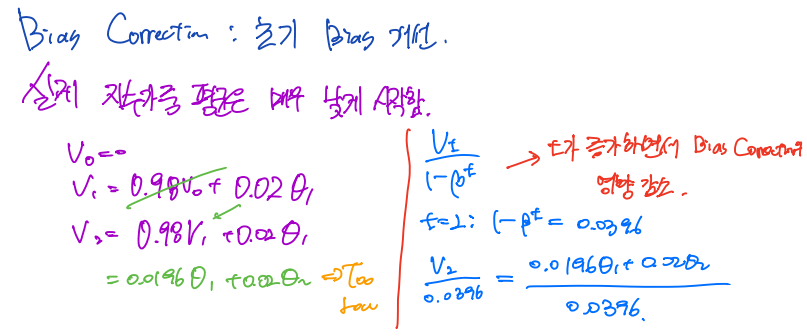 Bias Correction : 초기 Bias 개선.
실제 지수가중 평균은 매우 낮게 시작함.
V₀ = 0
V₁ = 0.98V₀ + 0.02 θ₁
V₂ = 0.98V₁ + 0.02 θ₁
= 0.0196 θ₁ + 0.02 θ₂ ⇒ Too low
Vt / 1-β^t → t가 증가하면서 Bias Correction
영향 감소.
t=2: 1-β^t = 0.0396
V₂ / 0.0396 = 0.0196θ₁ + 0.02θ₂ / 0.0396.